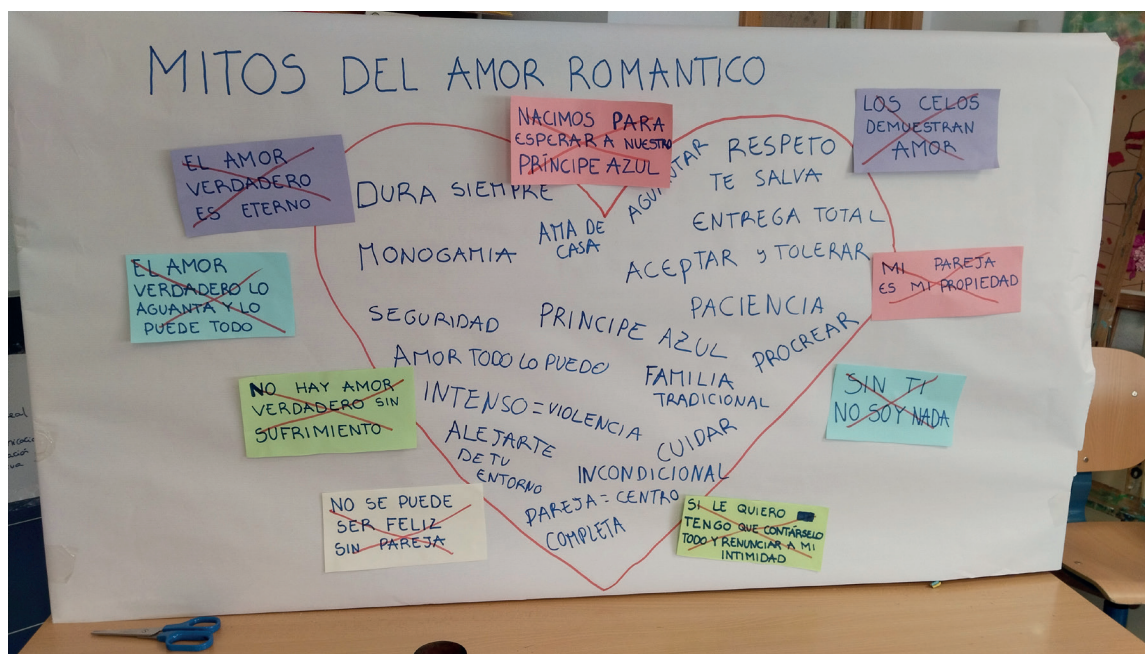 MITOS DEL AMOR ROMANTICO
EL AMOR
VERDADERO
ES ETERNO
NACIMOS PARA
ESPERAR A NUESTRO
PRÍNCIPE AZUL
LOS CELOS
DEMUESTRAN
AMOR
EL AMOR
VERDADERO LO
AGUANTA Y LO
PUEDE TODO
MI PAREJA
ES MI PROPIEDAD
NO HAY AMOR
VERDADERO SIN
SUFRIMIENTO
SIN TI
NO SOY NADA
NO SE PUEDE
SER FELIZ
SIN PAREJA
SI LE QUIERO
TENGO QUE CONTÁRSELO
TODO Y RENUNCIAR A MI
INTIMIDAD
DURA SIEMPRE
AMA DE
CASA
AGUANTAR
RESPETO
TE SALVA
MONOGAMIA
ENTREGA TOTAL
ACEPTAR y TOLERAR
SEGURIDAD
PRINCIPE AZUL
PACIENCIA
PROCREAR
AMOR TODO LO PUEDE
FAMILIA
TRADICIONAL
INTENSO = VIOLENCIA
CUIDAR
ALEJARTE
DE TU
ENTORNO
INCONDICIONAL
PAREJA = CENTRO
COMPLETA